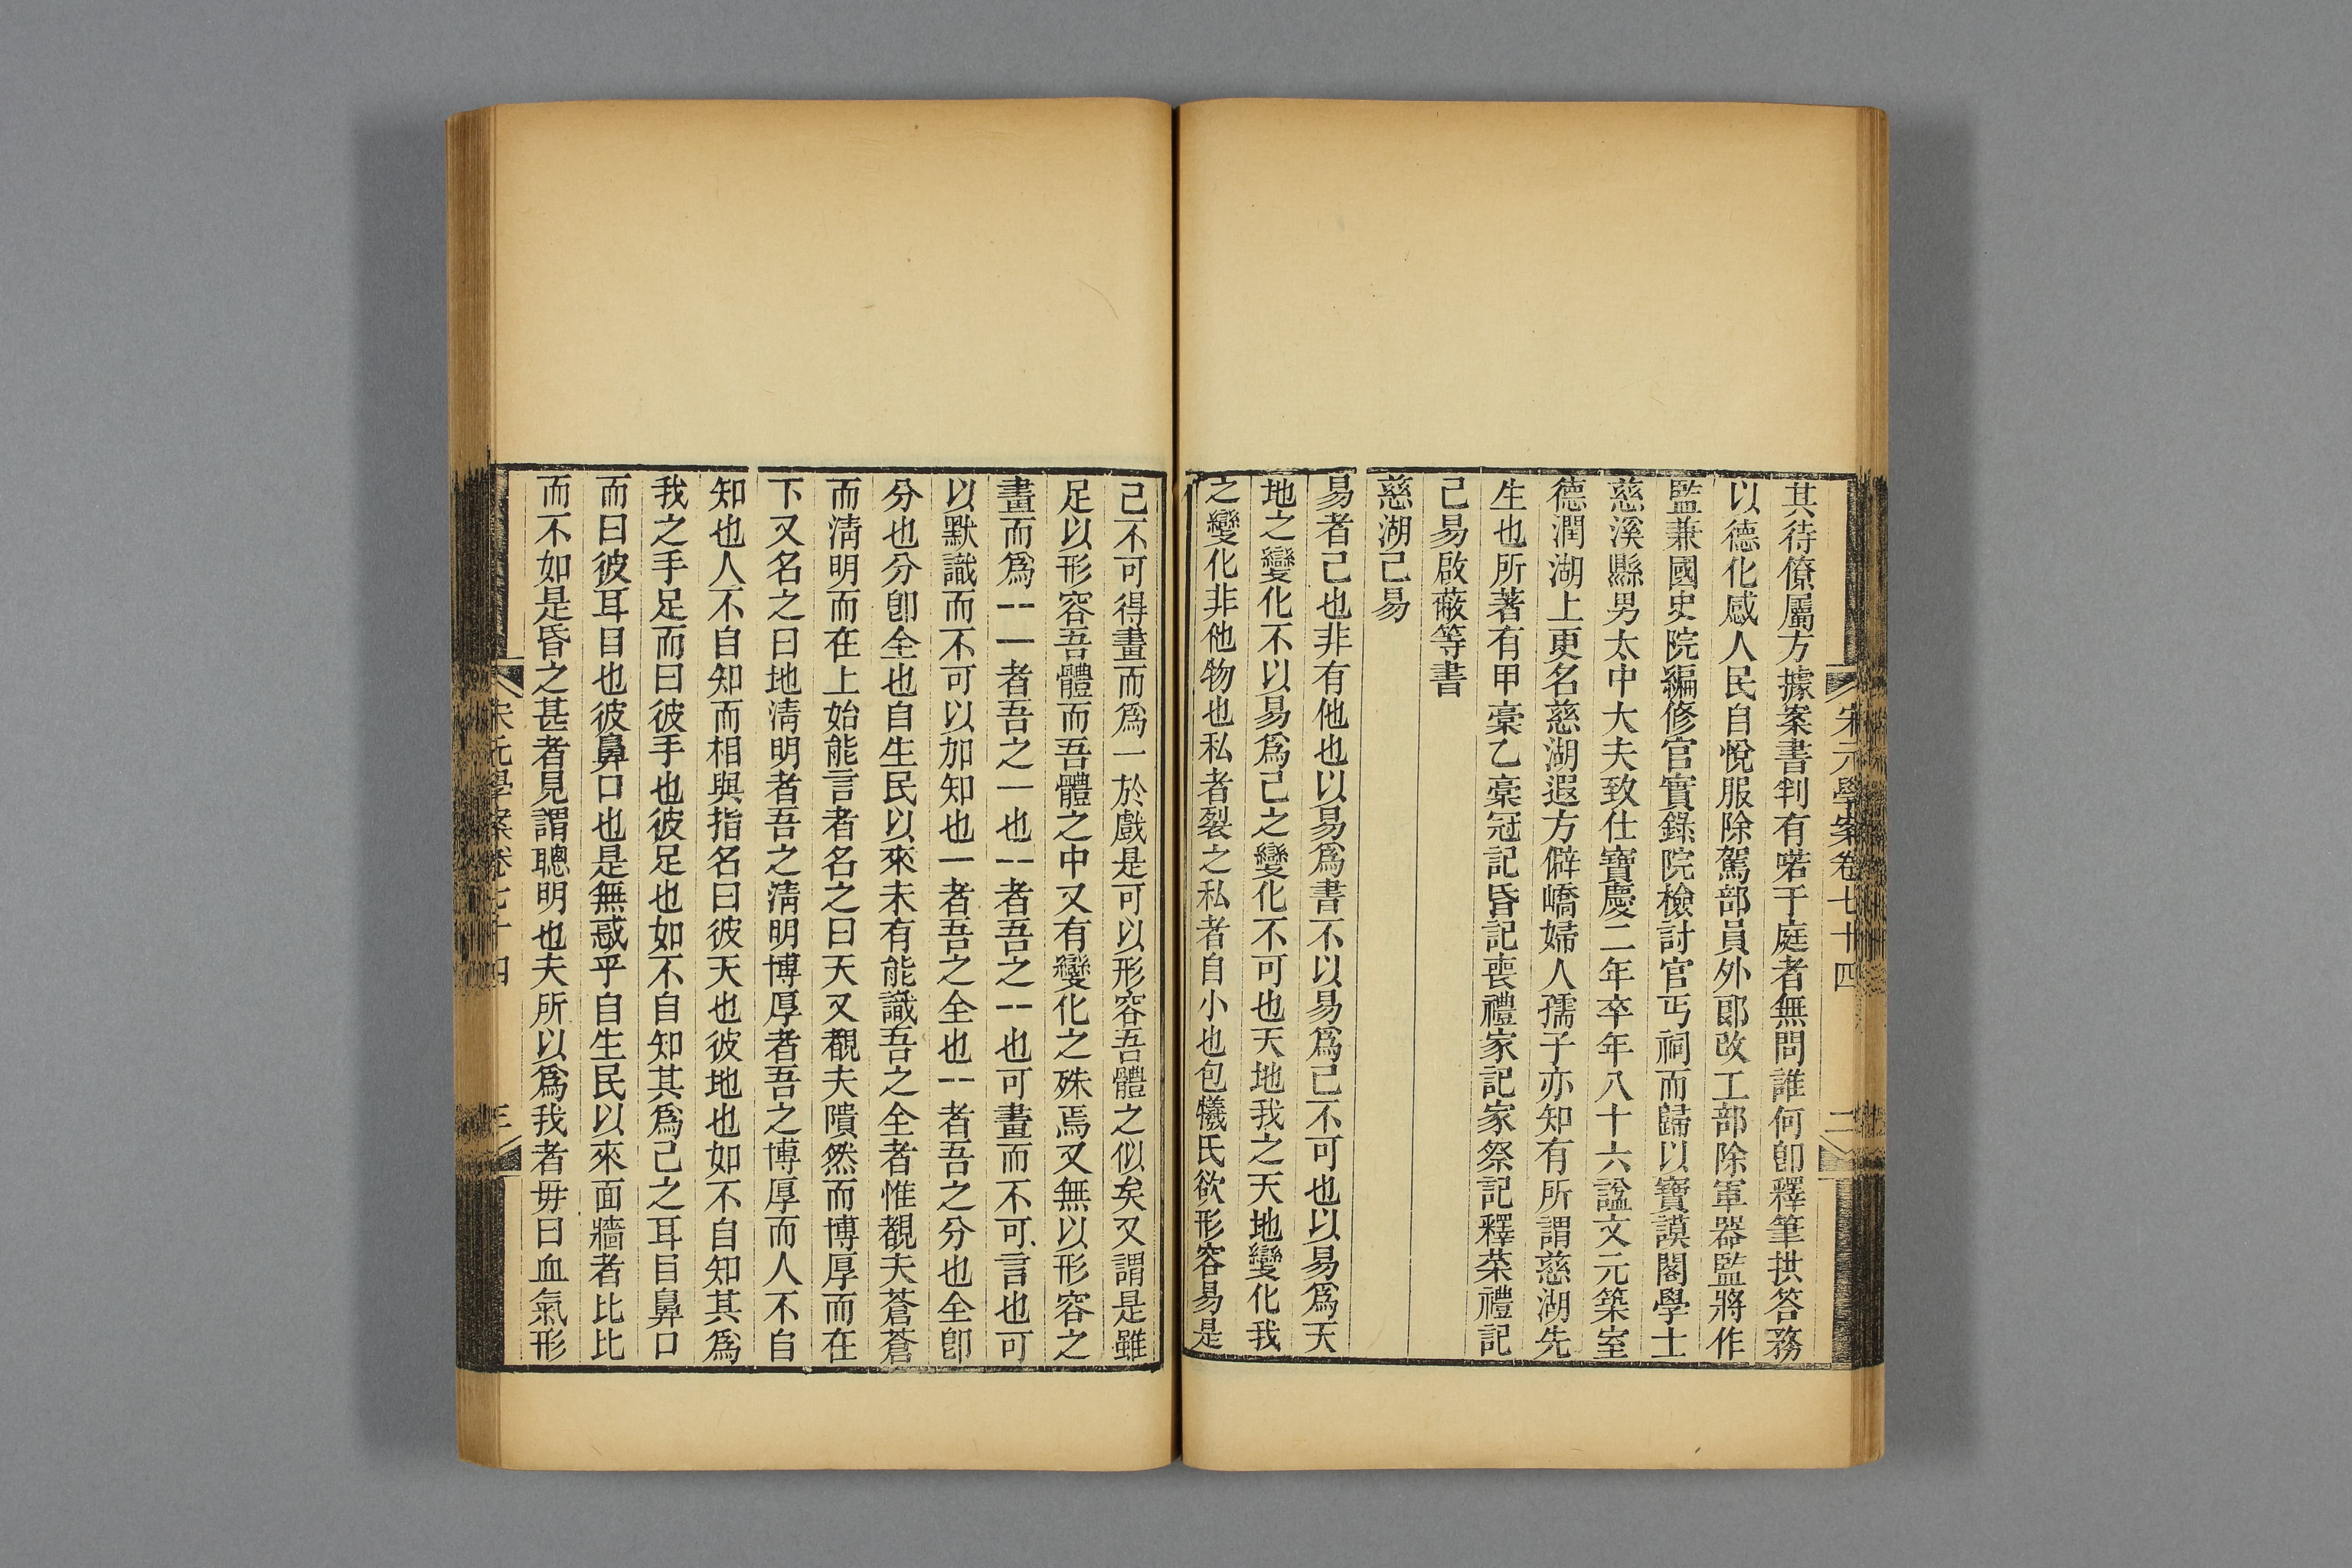 宋元學案卷七十四
二
其待僚屬方據案書判有喏于庭者無問誰何卽釋筆拱答務
以德化感人民自悅服除駕部員外郞改工部除軍器監將作
監兼國史院編修官實錄院檢討官丐祠而歸以寶謨閣學士
慈溪縣男太中大夫致仕寶慶二年卒年八十六諡文元築室
德潤湖上更名慈湖遐方僻嶠婦人孺子亦知有所謂慈湖先
生也所著有甲稾乙稾冠記昏記喪禮家記家祭記釋菜禮記
己易啟蔽等書
慈湖己易
易者己也非有他也以易爲書不以易爲己不可也以易爲天
地之變化不以易爲己之變化不可也天地我之天地變化我
之變化非他物也私者裂之私者自小也包犧氏欲形容易是
己不可得畫而爲一於戲是可以形容吾體之似矣又謂是雖
足以形容吾體而吾體之中又有變化之殊焉又無以形容之
畫而爲--一者吾之一也--者吾之--也可畫而不可言也可
以默識而不可以加知也一者吾之全也--者吾之分也全卽
分也分卽全也自生民以來未有能識吾之全者惟觀夫蒼蒼
而淸明而在上始能言者名之曰天又觀夫隤然而博厚而在
下又名之曰地淸明者吾之淸明博厚者吾之博厚而人不自
知也人不自知而相與指名曰彼天也彼地也如不自知其爲
我之手足而曰彼手也彼足也如不自知其爲己之耳目鼻口
而曰彼耳目也彼鼻口也是無惑乎自生民以來面牆者比比
而不如是昏之甚者見謂聰明也夫所以爲我者毋曰血氣形
宋元學案卷七十四
三